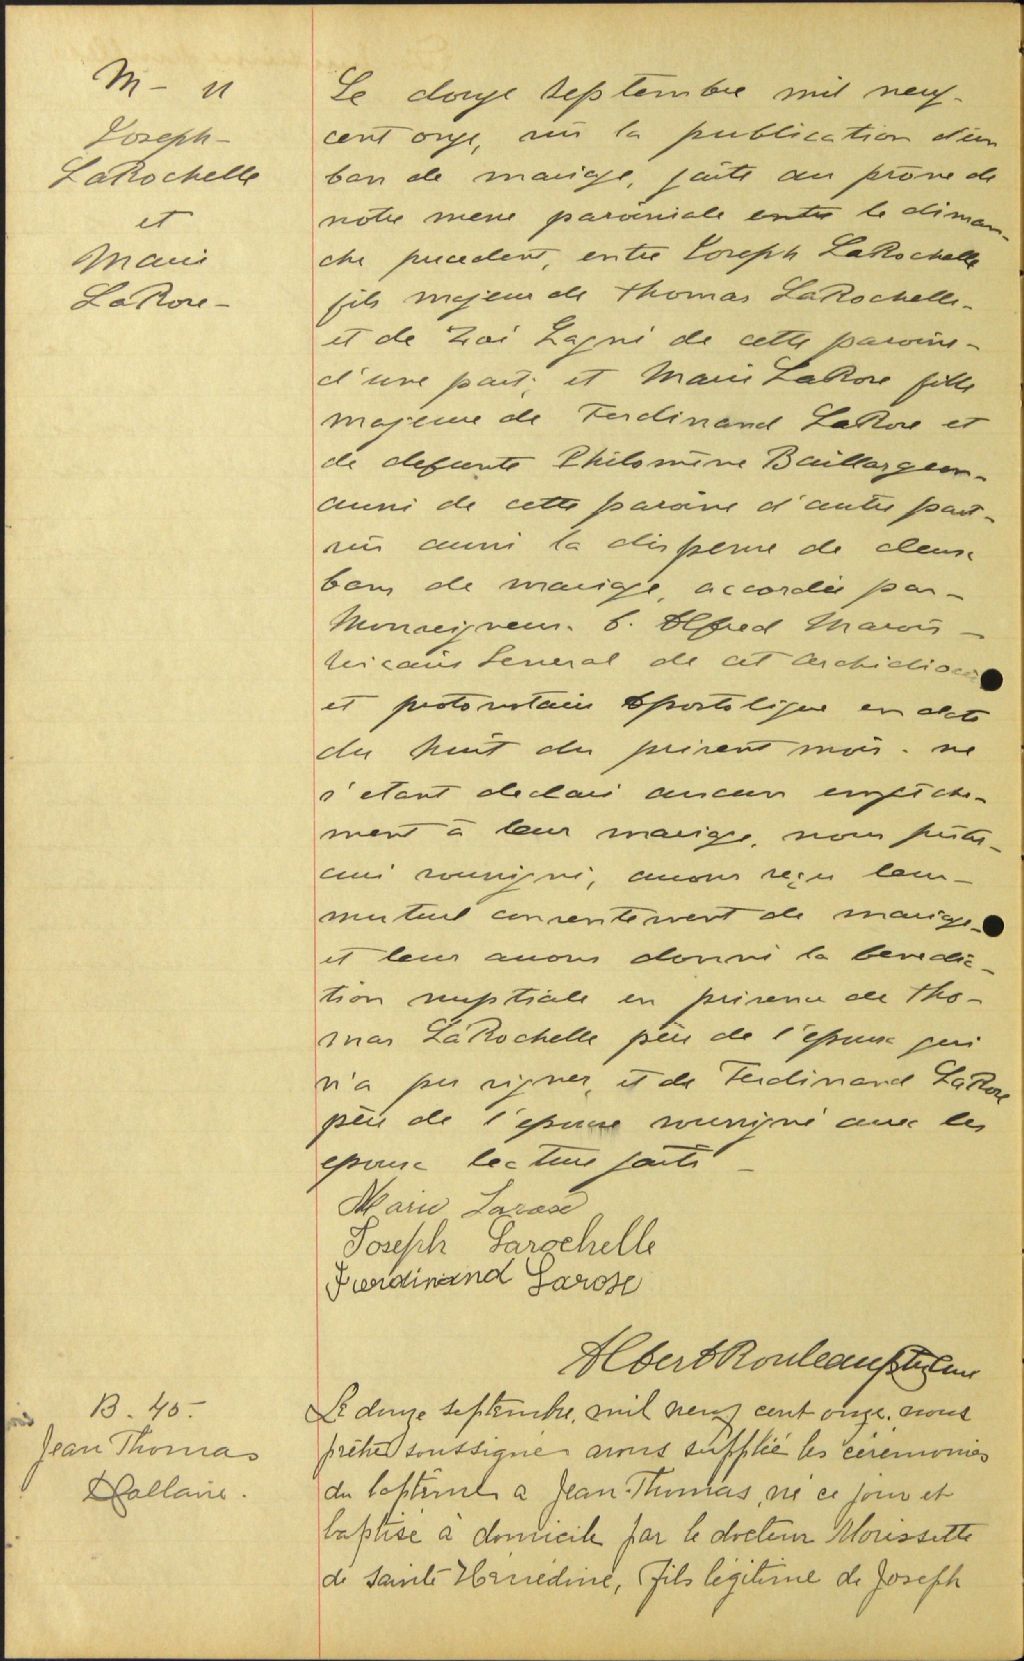 M - 11
Joseph -
LaRochelle
et
Marie
LaRose -
Le douze septembre mil neuf -
cent onze, vu la publication d'un
ban de mariage, faite au prône de
notre messe paroissiale entre le diman-
che precedent, entre Joseph LaRochelle
fils majeur de Thomas LaRochelle -
et de Zoé Gagné de cette paroisse -
d'une part; et Marie LaRose fille
majeure de Ferdinand LaRose et
de defunte Philomène Baillargeon -
aussi de cette paroisse d'autre part -
vu aussi la dispense de deux
bans de mariage, accordée par -
Monseigneur C. Alfred Marois -
Vicaire General de cet archidiocèse
et protonotaire apostolique en date
du huit du présent mois. ne
s'etant déclaré aucun empêche-
ment à leur mariage, nous prêtre -
curé soussigné, avons reçu leur -
mutuel consentement de mariage -
et leur avons donné la benedic-
tion nuptiale en présence de Tho-
mas LaRochelle père de l'époux qui
n'a pu signer, et de Ferdinand LaRose
père de l'épouse soussigné avec les
epoux lecture faite -
Marie Larose
Joseph Larochelle
Ferdinand Larose
Albert Rouleau ptre Curé
B. 45.
Jean Thomas
Dallaire.
Le douze septembre, mil neuf cent onze, nous
prêtre soussigné avons supplié les cérémonies
du baptême a Jean-Thomas, né ce jour et
baptisé à domicile par le docteur Morissette
de sainte Hénédine, fils légitime de Joseph